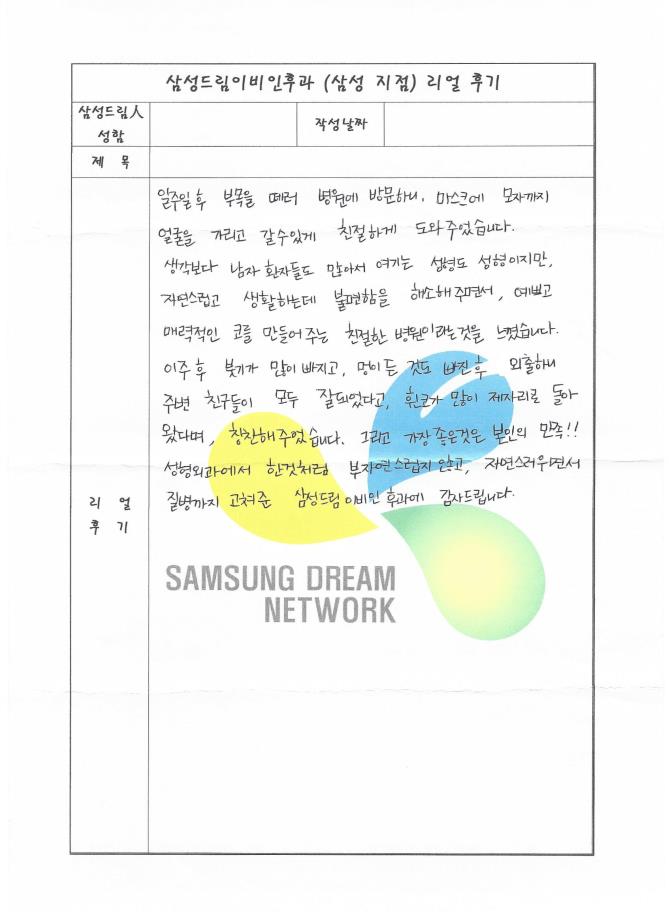 삼성드림이비인후과 (삼성 지점) 리얼 후기
삼성드림人
성함
작성날짜
제 목
일주일 후 부목을 떼러 병원에 방문하니, 마스크에 모자까지
얼굴을 가리고 갈수있게 친절하게 도와주었습니다.
생각보다 남자 환자들도 많아서 여기는 성형도 성형이지만,
자연스럽고 생활하는데 불편함을 해소해주면서, 예쁘고
매력적인 코를 만들어 주는 친절한 병원이라는것을 느꼈습니다.
이주 후 붓기가 많이 빠지고, 멍이 든 것도 빠진 후 외출하니
주변 친구들이 모두 잘되었다고, 휜코가 많이 제자리로 돌아
왔다며, 칭찬해주었습니다. 그리고 가장 좋은것은 본인의 만족!!
성형외과에서 한것처럼 부자연스럽지 않고, 자연스러우면서
질병까지 고쳐준 삼성드림이비인후과에 감사드립니다.
리 얼
후 기
SAMSUNG DREAM
NETWORK